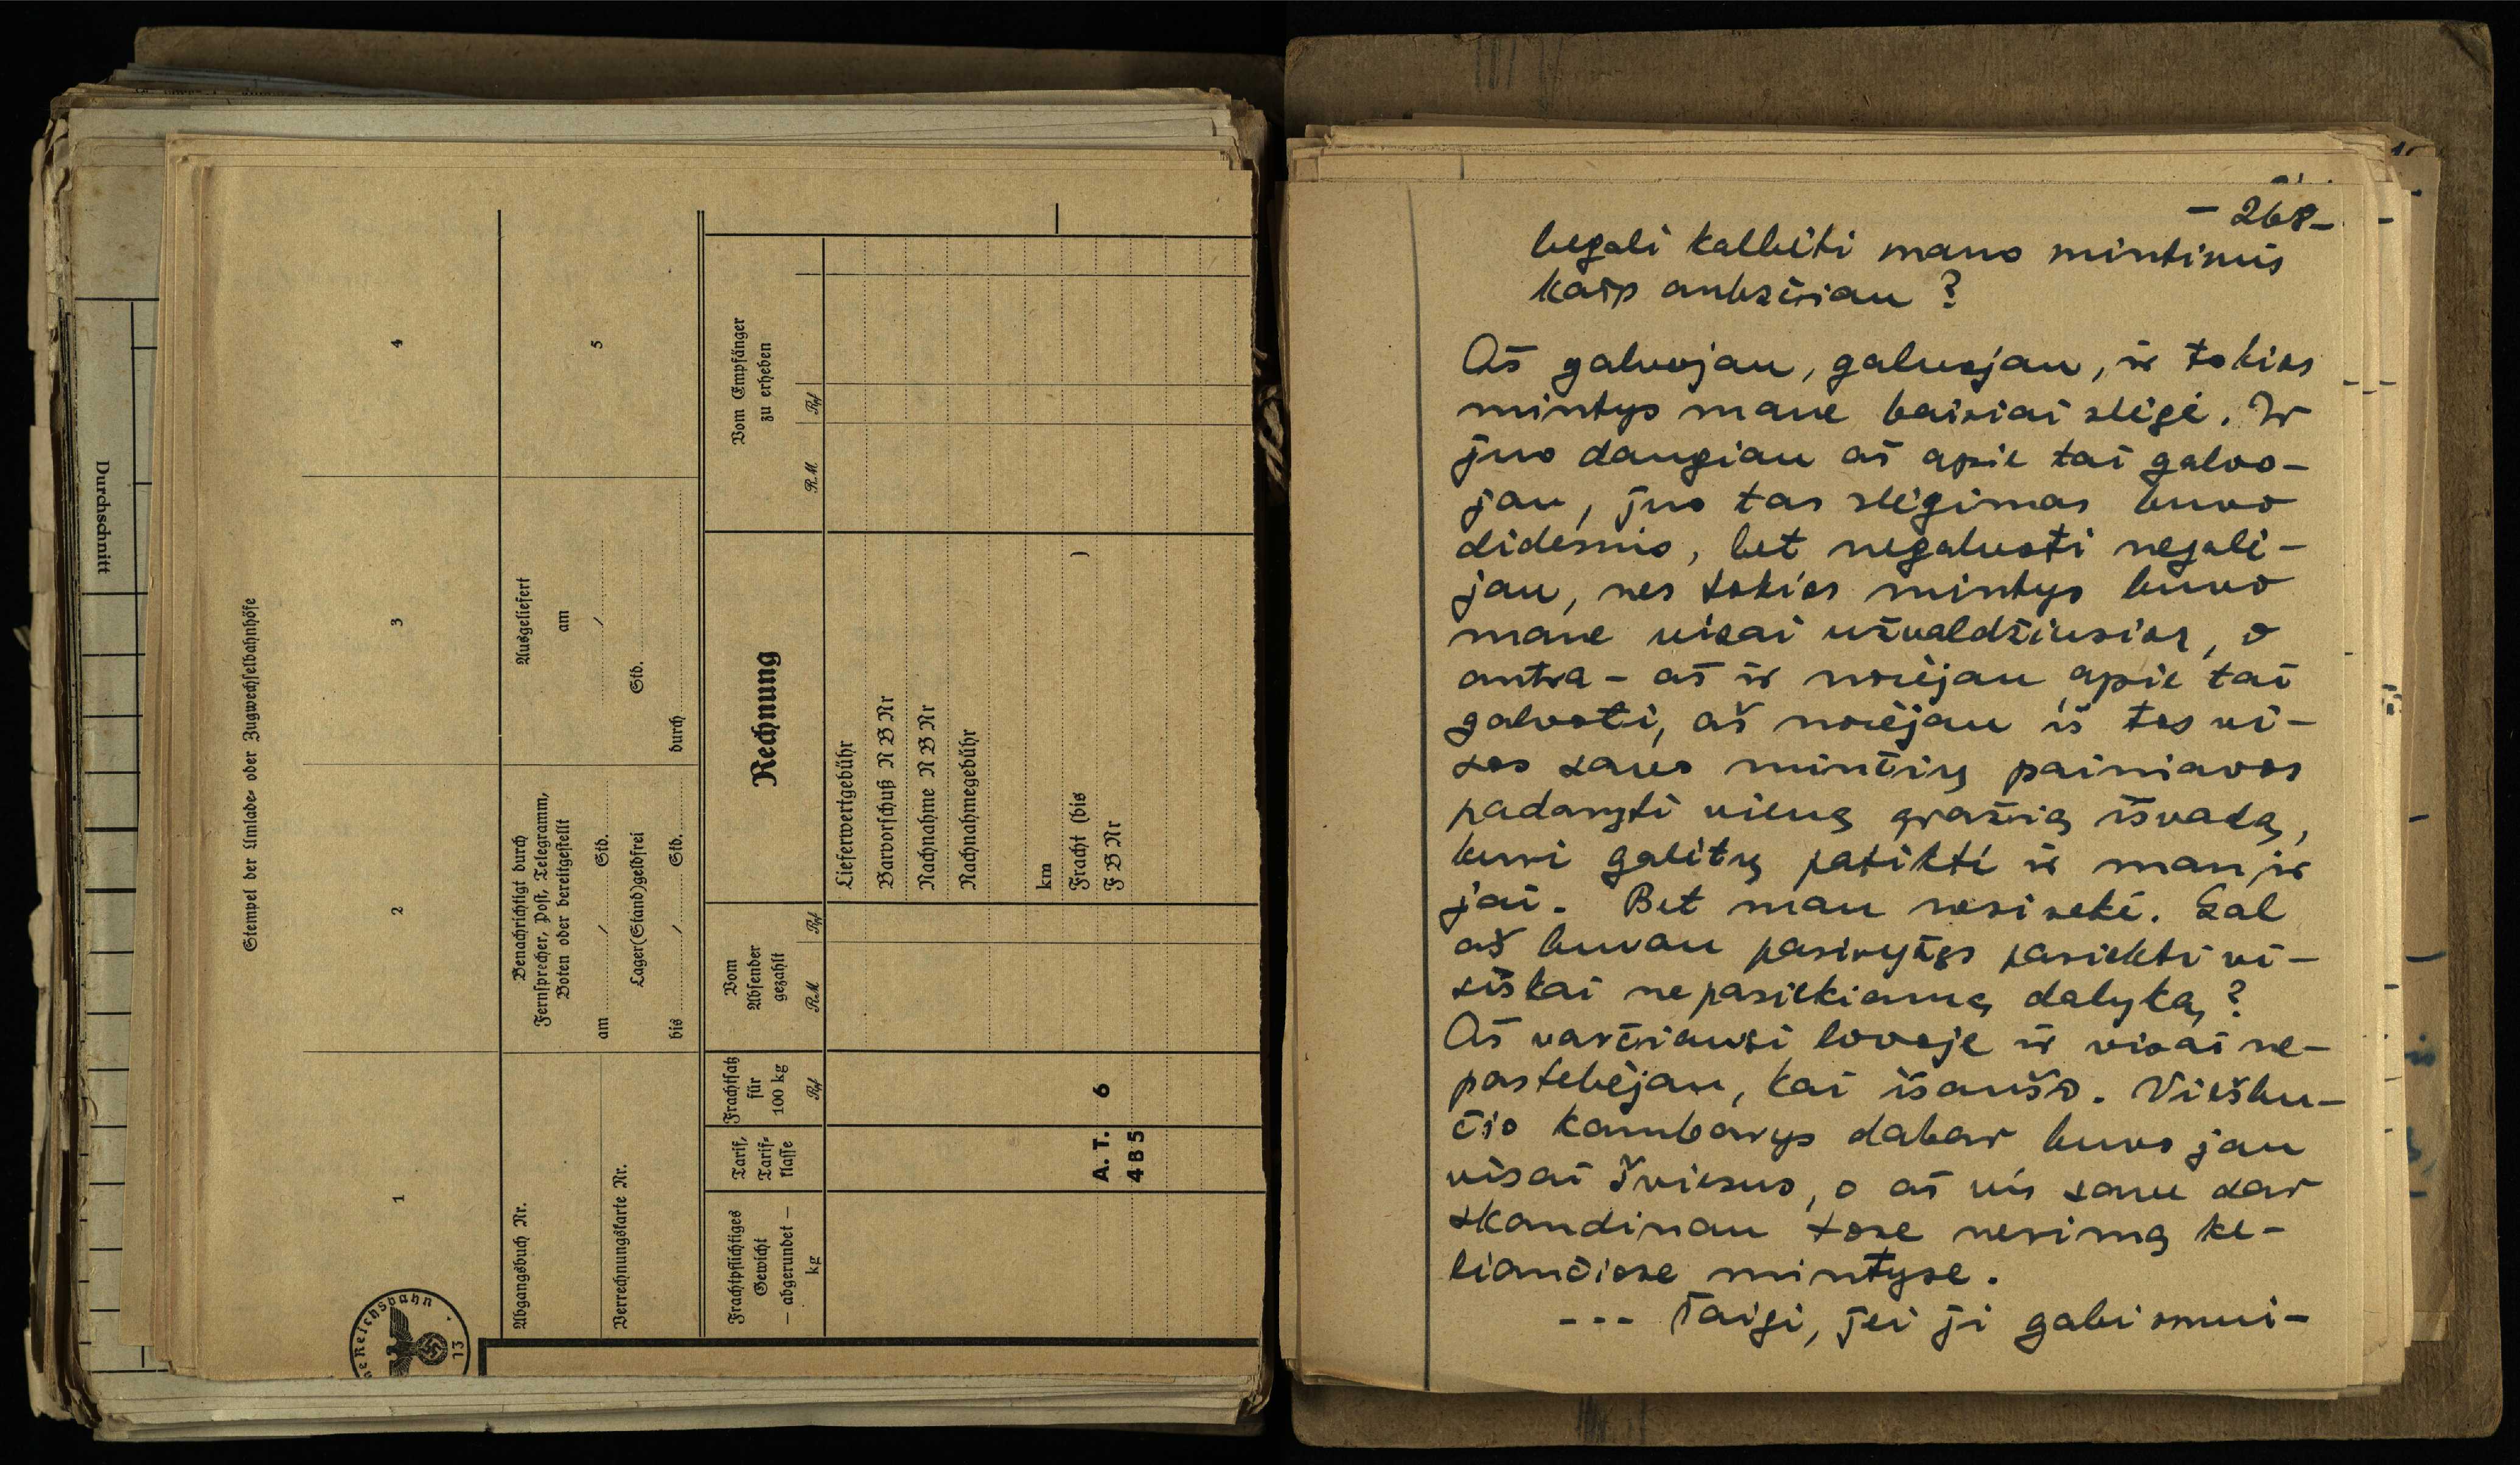 Durchschnitt
Stempel der Umlade- oder Zugwechselbahnhöfe
1
2
3
4
Abgangsbuch Nr.
Verrechnungskarte Nr.
Benachrichtigt durch
Fernsprecher, Post, Telegramm,
Boten oder bereitgestellt
am / Std.
Lager(Stand)geldfrei
bis / Std.
Ausgeliefert
am
/
Std.
durch
5
Frachtpflichtiges
Gewicht
— abgerundet —
kg
Tarif,
Tarif-
klasse
Frachtsatz
für
100 kg
Rpf
Vom
Absender
gezahlt
RM Rpf
Rechnung
Vom Empfänger
zu erheben
RM Rpf
Lieferwertgebühr
Barvorschuß N B Nr
Nachnahme N B Nr
Nachnahmegebühr
km
Fracht (bis )
F B Nr
A. T. 6
4 B 5
e Reichsbahn
13
- 268 -
begali kalbėti mano mintimis
kaip anksčiau?
Aš galvojau, galvojau, ir tokios
mintys mane baisiai slėgė. Ir
juo daugiau aš apie tai galvo-
jau, juo tas slėgimas buvo
didesnis, bet negalvoti negalė-
jau, nes tokios mintys buvo
mane visai užvaldžiusios, o
antra - aš ir norėjau apie tai
galvoti, aš norėjau iš tos vi-
sos savo minčių painiavos
padaryti vieną gražią išvadą,
kuri galėtų patikti ir man ir
jai. Bet man nesisekė. Gal
aš buvau pasiryžęs pasiekti vi-
siškai nepasiekiamą dalyką?
Aš varčiausi lovoje ir visai ne-
pastebėjau, kai išaušo. Viešbu-
čio kambarys dabar buvo jau
visai šviesus, o aš vis save dar
skandinau tose nerimą ke-
liančiose mintyse.
--- Taigi, jei ji gabi smui-